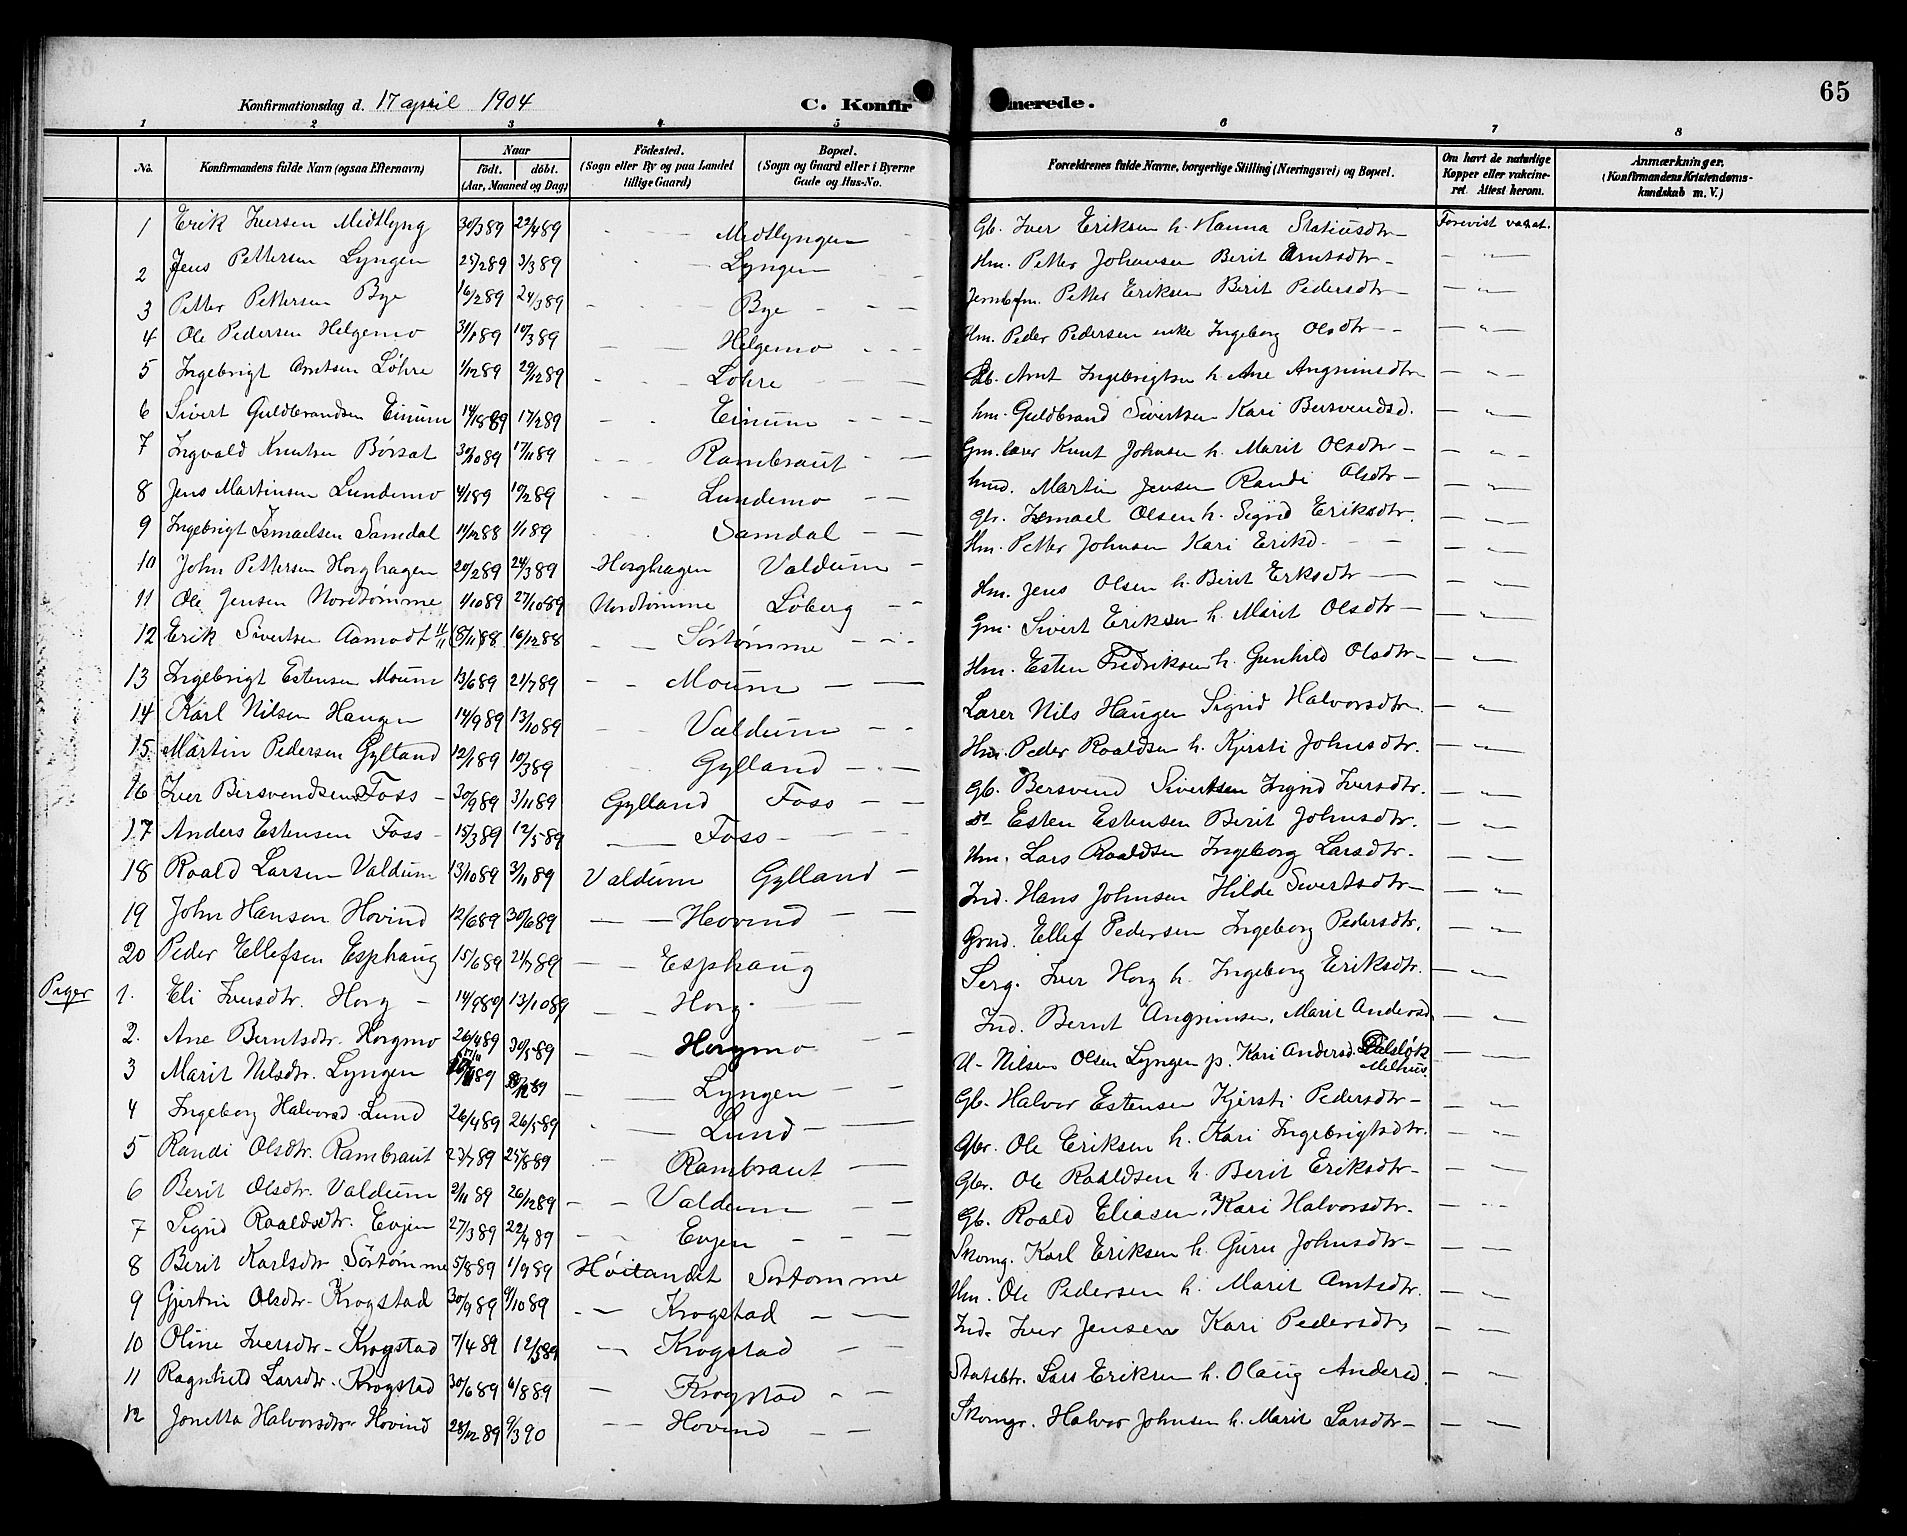 65
Konfirmationsdag d. 17 april 1904
C. Konfirmerede.
1 2 3 4 5 6 7 8
No. Konfirmandens fulde Navn (ogsaa Efternavn) Naar födt. döbt. (Aar, Maaned og Dag) Födested. (Sogn eller By og paa Landet tillige Gaard) Bopæl. (Sogn og Gaard eller i Byerne Gade og Hus-No. Forældrenes fulde Navne, borgerlige Stilling (Næringsvei) og Bopæl. Om havt de naturlige Kopper eller vakcineret. Attest herom. Anmærkninger. (Konfirmandens Kristendomskundskab m. V.)
1 Erik Iversen Midtlyng 30/3 89 22/4 89 — Midtlyngen — Gb. Iver Eriksen h. Hanna Statiusdtr — Forevist vac.at.
2 Jens Pettersen Lyngen 25/2 89 31/3 89 — Lyngen — Hm. Petter Johansen Berit Arntsdtr — — " —
3 Petter Pettersen Bye 16/2 89 24/3 89 — Bye — Jernbfm. Petter Eriksen Berit Pedersdtr — — " —
4 Ole Pedersen Helgemo 31/1 89 10/3 89 — Helgemo — Hm. Peder Pedersen enke Ingeborg Olsdtr — — " —
5 Ingebrigt Arntsen Löhre 1/12 89 29/12 89 — Löhre — Gb. Arnt Ingebrigtsn h. Ane Angrimsdtr — " —
6 Sivert Guldbrandsen Einum 14/1 89 17/2 89 — Einum — hm. Guldbrand Sivertsen Kari Bersvendsd. — " —
7 Ingvald Knutsen Börsat 30/10 89 17/11 89 — Rambraut — Gm. lærer Knut Johnsen h. Marit Olsdtr — — " —
8 Jens Martinsen Lundemo 4/1 89 10/2 89 — Lundemo — hmd. Martin Jensen Randi Olsdtr — — " —
9 Ingebrigt Ismaelsen Samdal 11/12 88 1/1 89 Samdal — Gbr. Ismael Olsen h. Sigrid Eriksdtr. — " —
10 John Pettersen Horghagen 20/2 89 24/3 89 Horghagen Valdum — Hm. Petter Johnsen Kari Eriksd. — —
11 Ole Jensen Nordtømme 1/10 89 27/10 89 Nordtømme Löberg — Hm. Jens Olsen h. Berit Erksdtr — — " —
12 Erik Sivertsen Aamodt 18/11 88 16/12 88 — Sörtömme — Gm. Sivert Eriksen h. Marit Olsdtr — — " —
13 Ingebrigt Estensen Moum 13/6 89 21/7 89 — Moum — Hm. Esten Fredriksen h. Gunhild Olsdtr — — " —
14 Karl Nilsen Haugen 14/9 89 13/10 89 — Valdum — Lærer Nils Haugen Sigrid Halvorsdtr. — " —
15 Martin Pedersen Gylland 12/1 89 10/3 89 — Gylland — Hm. Peder Roaldsen h. Kjersti Johnsdtr. — " —
16 Iver Bersvendsen Foss — 30/9 89 3/11 89 Gylland Foss — Gb. Bersvend Sivertsen Ingrid Iversdtr. — " —
17 Anders Estensen Foss — 15/3 89 12/5 89 — Foss — Do Esten Estensen Berit Johnsdtr. — " —
18 Roald Larsen Valdum 13/10 89 3/11 89 Valdum Gylland — Hm. Lars Roaldsen Ingeborg Larsdtr. — " —
19 John Hansen Hovind 12/6 89 30/6 89 — Hovind — Ind. Hans Johnsen Hilde Sivertsdtr — — " —
20 Peder Ellefsen Esphaug 15/6 89 21/7 89 — Esphaug Grnd. Ellef Pedersen Ingeborg Pedersdtr. — " —
Piger 1. Eli Iversdtr. Horg — 14/9 89 13/10 89 — Horg. — Serg. Iver Horg h. Ingeborg Eriksdtr. — " —
2. Ane Berntsdtr. Horgmo 26/4 89 30/5 89 — Horgmo — Ind. Bernt Angrimsen. Marit Andersd. — " —
3 Marit Nilsdtr. Lyngen 89 89 — Lyngen — U- Nilsen Olsen Lyngen p. Kari Andersd. Melhus. — " —
4 Ingeborg Halvorsd Lund 26/4 89 26/5 89 — Lund — Gb. Halvor Estensen Kjersti Pedersdtr — — " —
5 Randi Olsdtr. Rambraut 23/7 89 25/8 89 — Rambraut — Gbr. Ole Eriksen h. Kari Ingebrigtsdtr. — " —
6 Berit Olsdtr. Valdum 2/11 89 26/12 89 — Valdum — Gbr. Ole Roaldsen h. Berit Eriksdtr — — " —
7 Sigrid Roaldsdtr. Evjen 27/3 89 22/4 89 — Evjen — Gb. Roald Eliasen, Kari Halvorsdtr. — " —
8 Berit Karlsdtr. Sörtömme 5/8 89 1/9 89 Höilandet Sörtömme Skomg. Karl Eriksen h. Guru Johnsdtr — — " —
9 Gjertin Olsdtr — Krogstad 30/9 89 9/10 89 — Krogstad — Hm. Ole Pedersen h. Marit Arntsdtr. — " —
10 Oline Iversdtr — Krogstad 7/4 89 12/5 89 — Krogstad — Ind. Iver Jensen Kari Pedersdtr — " —
11 Ragnhild Larsdtr. Krogstad 30/6 89 6/8 89 — Krogstad — Statsbtr. Lars Eriksen h. Olaug Andersd. — " —
12 Jonetta Halvorsdtr. Hovind 28/12 89 9/3 90 — Hovind — Skomgr. Halvor Johnsen h. Marit Larsdtr — — " —